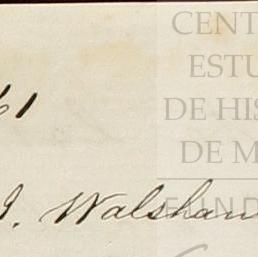 CENT
ESTU
DE HIS
DE M
FUND
61
J. Walshaw